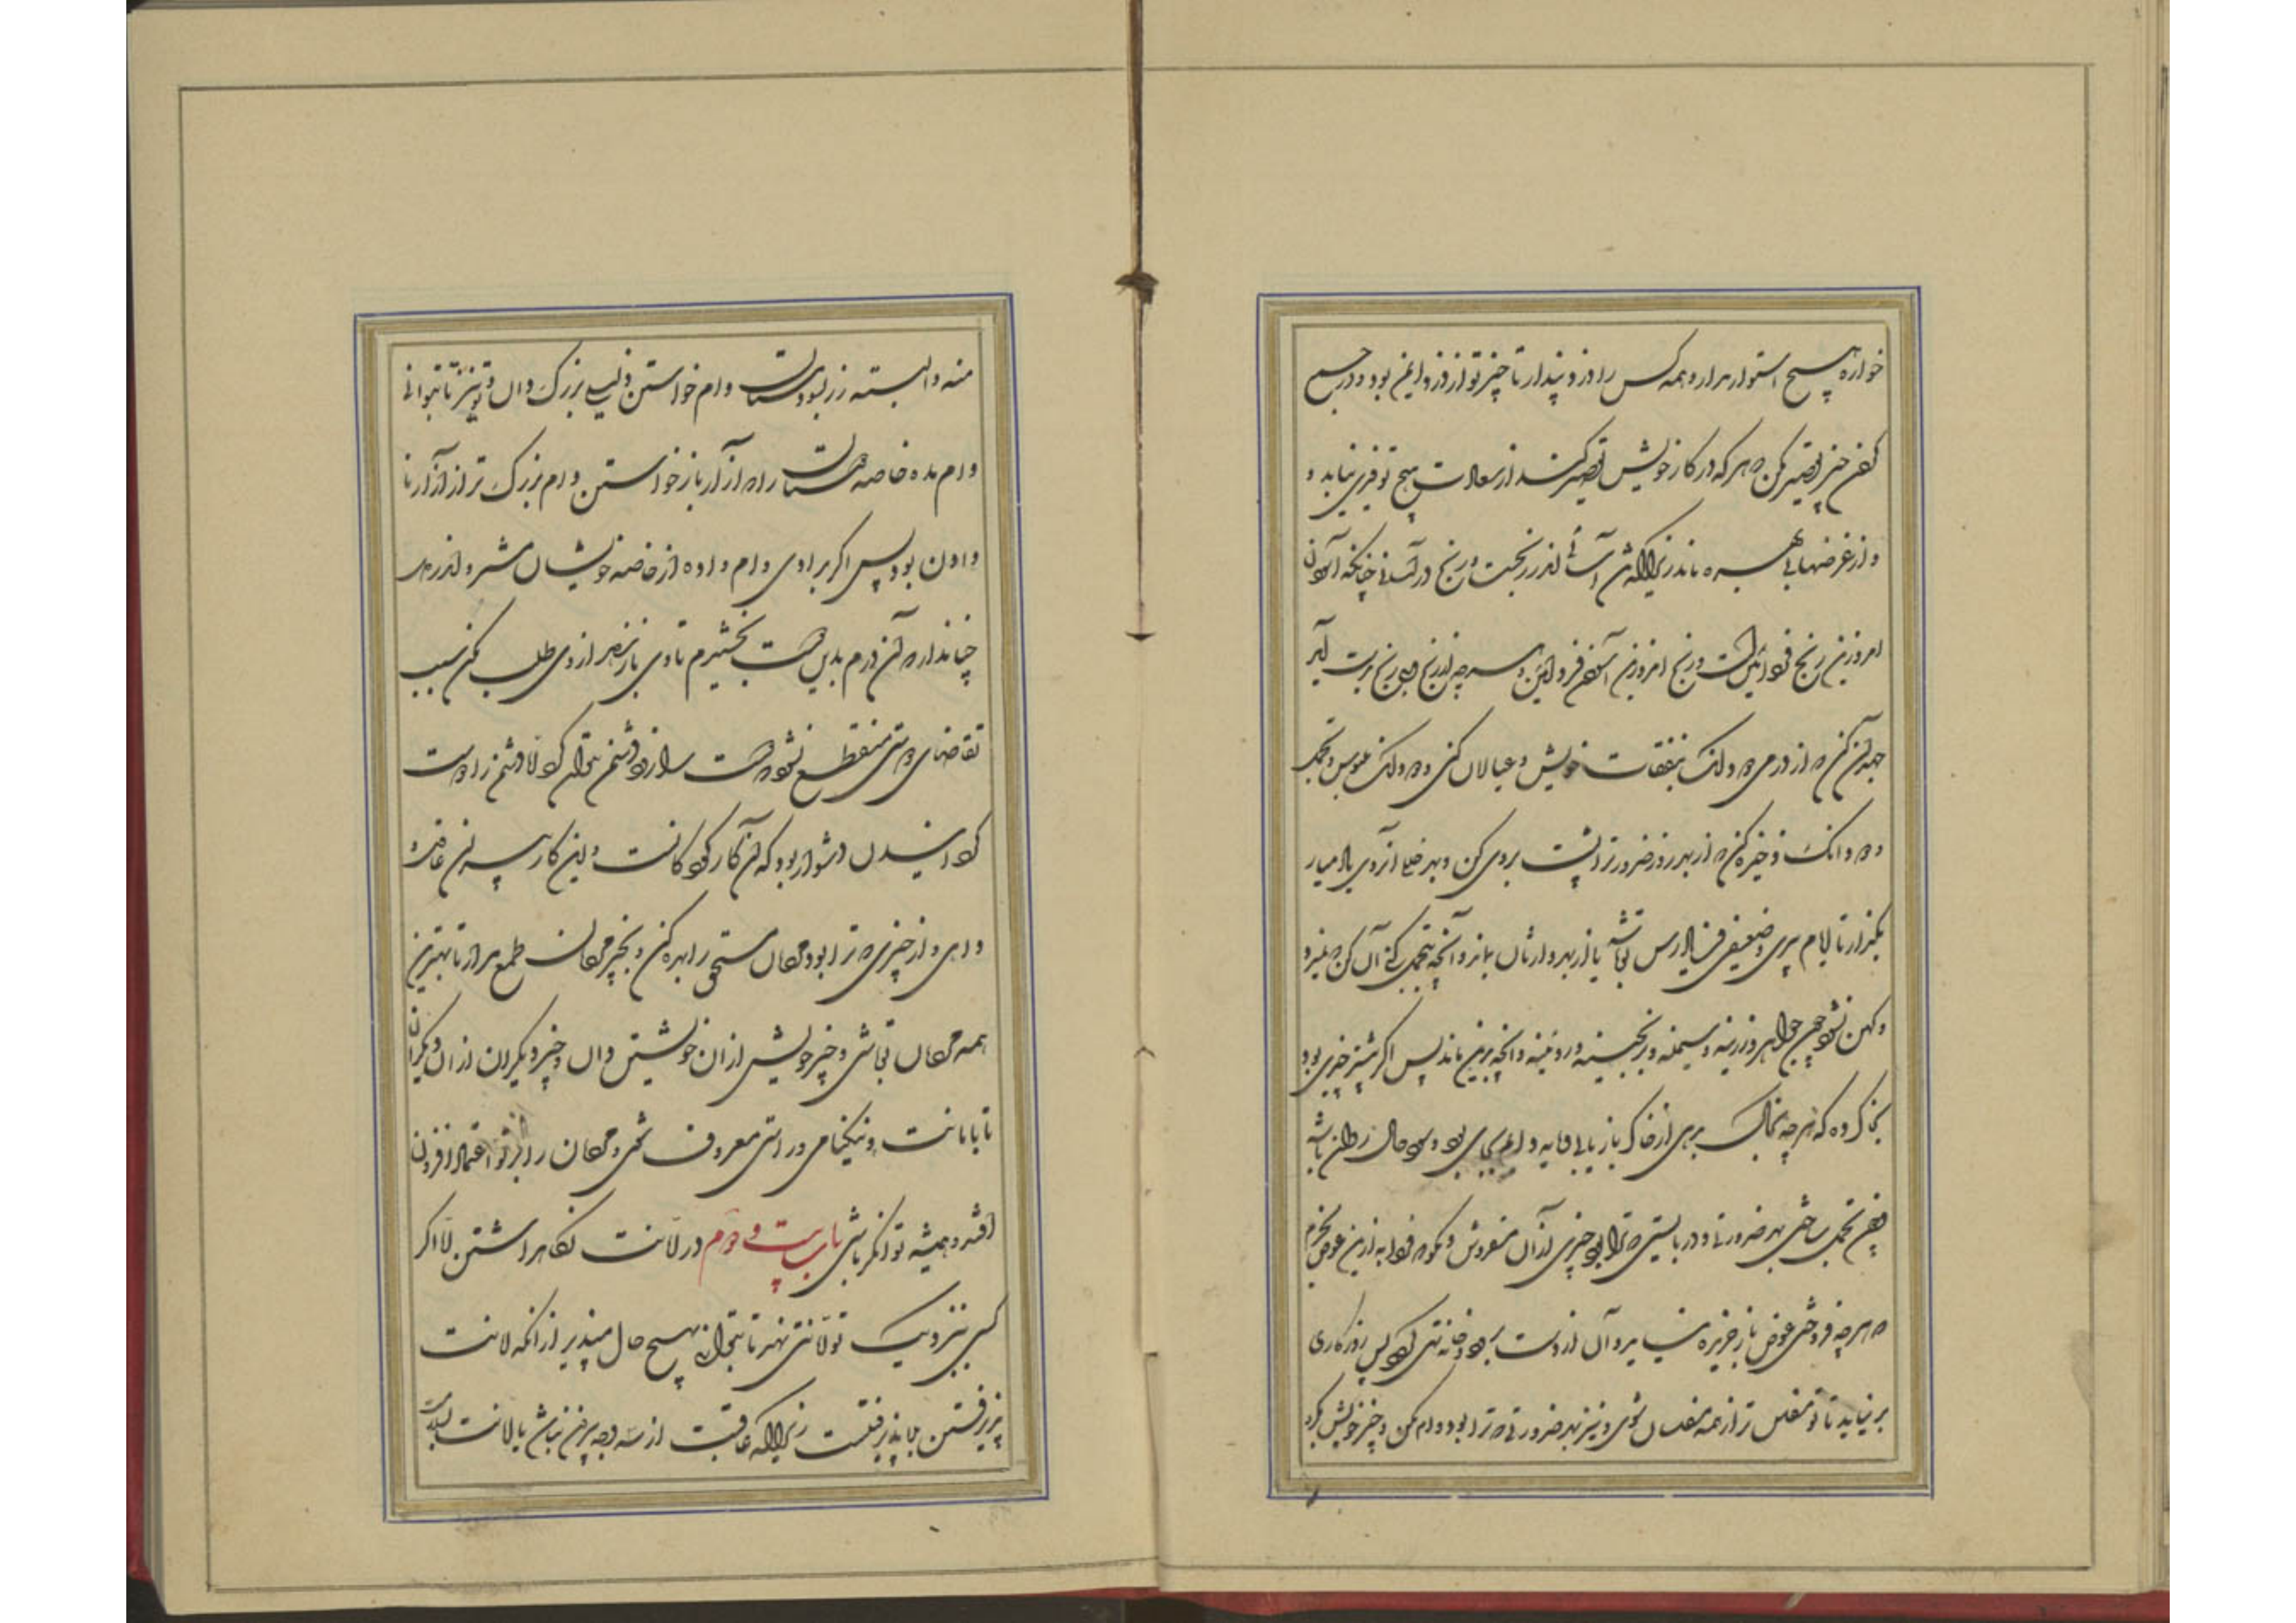 خواره هیچ استوار مدار و همه کس را دزد پندار تا چیز تو از دزد ایمن بود و در جمع
کردن چیز تقصیر مکن که هر که در کار خویش تقصیر کند از سعادت هیچ توفیری نیابد و
و از غرضها بی بهره ماند زیرا که تن آسانی اندر رنجست و رنج در آسانی چنانکه آسانی
امروزین رنج فردائین است و رنج امروزین آسانی فردائین و هر چه اندر رنج و بی رنج بدست آید
جهد آن کن که از درمی دو دانگ بنفقات خویش و عیالان کنی و دو دانگ بملبوس و تجمل
و دو دانگ ذخیره کن که از بهر روز ضرورتراست بروی مکن و بهر خلل از وی یاد میار
بگذار تا ایام پیری و ضعیفی فریادرس تو باشد یا از بهر وارثان بماند و آنچه تجمل کنی آن کن که نمیرد
و کهن نشود چون جواهر و زرینه و سیمینه و برنجینه و روئینه و آنچه بدین ماند پس اگر بیشتر چیزی بود
بخاک ده که هر چه بخاک بدهی از خاک باز یابی و مایه دایم بجای بود و سود حلال روان باشد
چون تجمل ساختی بهر ضرورتی و دربایستی که ترا بود چیزی از آن مفروش و مگو که فردا به ازین عوض بخرم
که هر چه فروختی عوض باز خریده نیاید و آن از دست برود و خانه تهی گردد پس روزگاری
بر نیاید تا تو مفلس تر از همه مفلسان شوی و نیز بهر ضرورتی که ترا بود وام مکن و چیز خویش بگرو
منه و البته زر بسود مستان و وام خواستن ذلیلی بزرگ دان و تو نیز تا بتوانی
وام مده خاصه دوستان را که از آزار باز خواستن وام بزرگ تر از آزار نا
دادن بود پس اگر بدادی وام داده از خاصه خویشان مشمر و اندر دل
چنان دار که آن درم بدین دوست بخشیدم تا وی باز ندهد از وی طلب مکن سبب
تقاضای دوستی منقطع نشود که دوست را زود دشمن بتوان کرد اما دشمن را دوست
گردانیدن دشوار بود که آن کار کودکانست و این کار پیران عاقل و
داهی و از چیزی که ترا بود مردمان مستحق را بهره کن و بچیز مردمان طمع مدار تا بهترین
همه مردمان تو باشی و چیز خویش از ان خویشتن دان و چیز دیگران از ان دیگران
تا بامانت و نیکنامی و راستی معروف شوی و مردمان را بر تو اعتماد افزون
افتد و همیشه توانگر باشی باب بیست و دوم در امانت نگاهداشتن اما اگر
کسی بنزدیک تو امانتی نهد تا بتوانی بهیچ حال مپذیر از آنکه امانت
پذیرفتن بلا پذیرفتنست زیرا که عاقبت از سه وجه بیرون نباشد یا امانت بسلامت